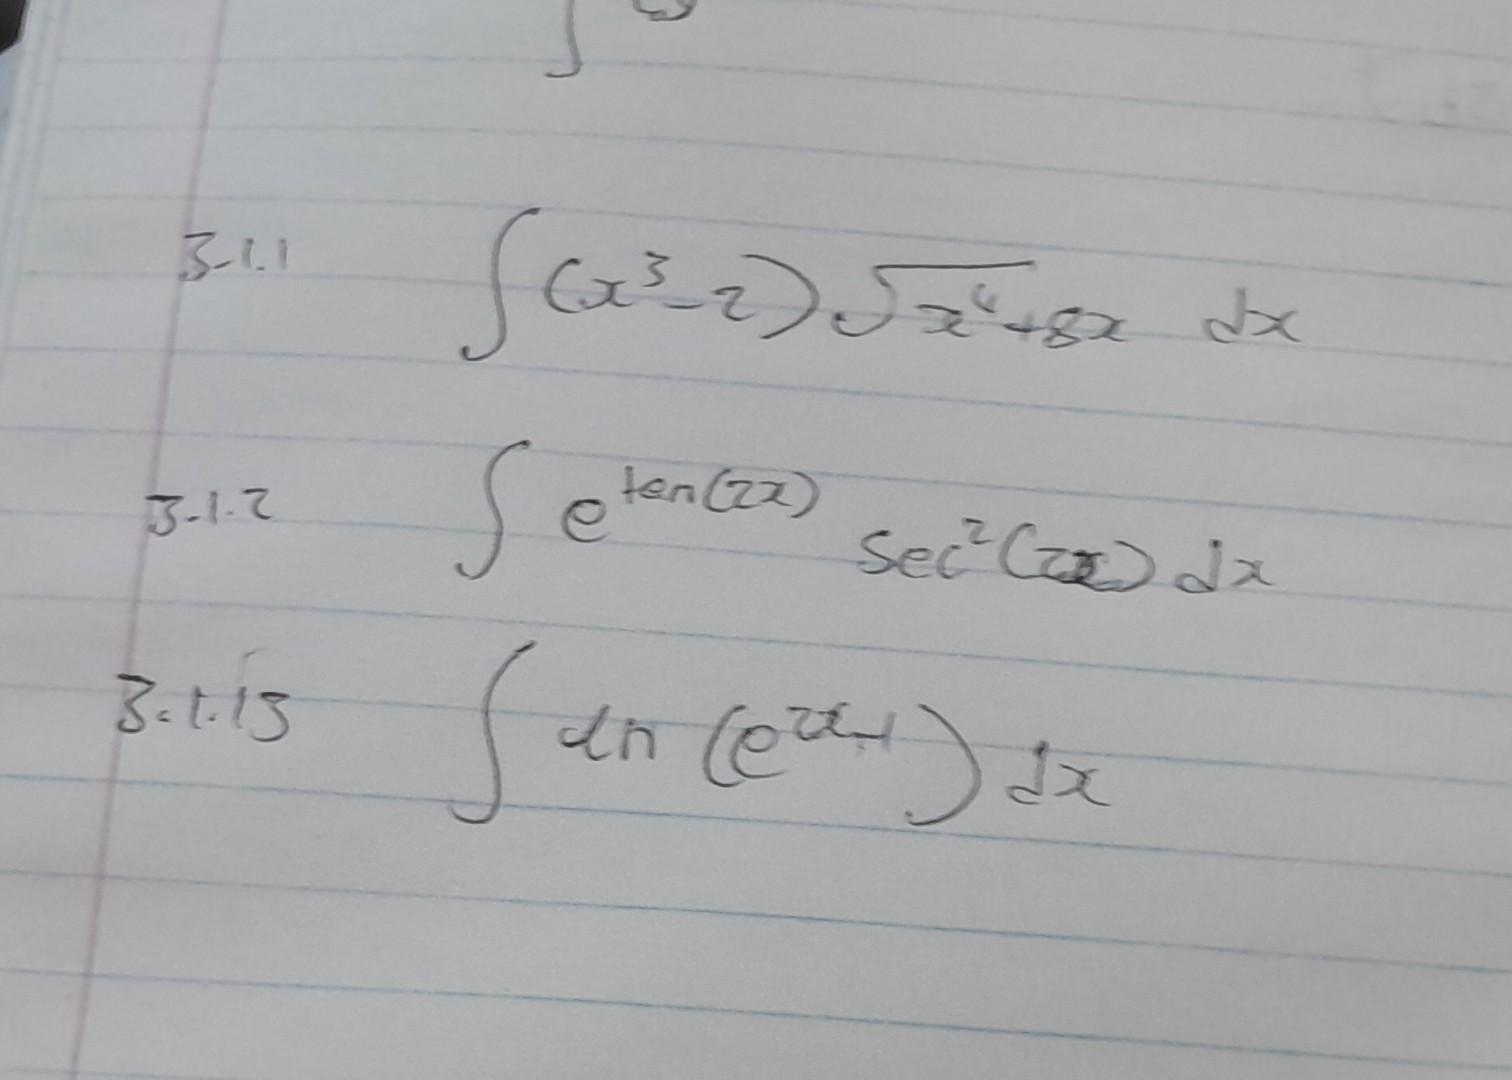 3.1.1 ∫(x³-2)√x⁴+8x dx
3.1.2 ∫ e^tan(2x) sec²(2x) dx
3.1.13 ∫ ln (e^2x-1) dx